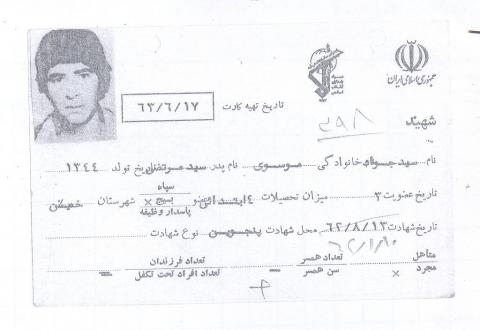 جمهوری اسلامی ایران
سپاه
شهید
۳۹۸
تاریخ تهیه کارت ۶۳/۶/۱۷
نام سید جواد نام خانوادگی موسوی نام پدر سید مرتضی تاریخ تولد ۱۳٤٤
تاریخ عضویت ۳ میزان تحصیلات ٤ ابتدائی عضو سپاه بسیج × پاسدار وظیفه شهرستان خمین
تاریخ شهادت ۶۲/۸/۱۳ محل شهادت پنجوین نوع شهادت
متأهل مجرد × تعداد همسر سن همسر — تعداد فرزندان تعداد افراد تحت تکفل —